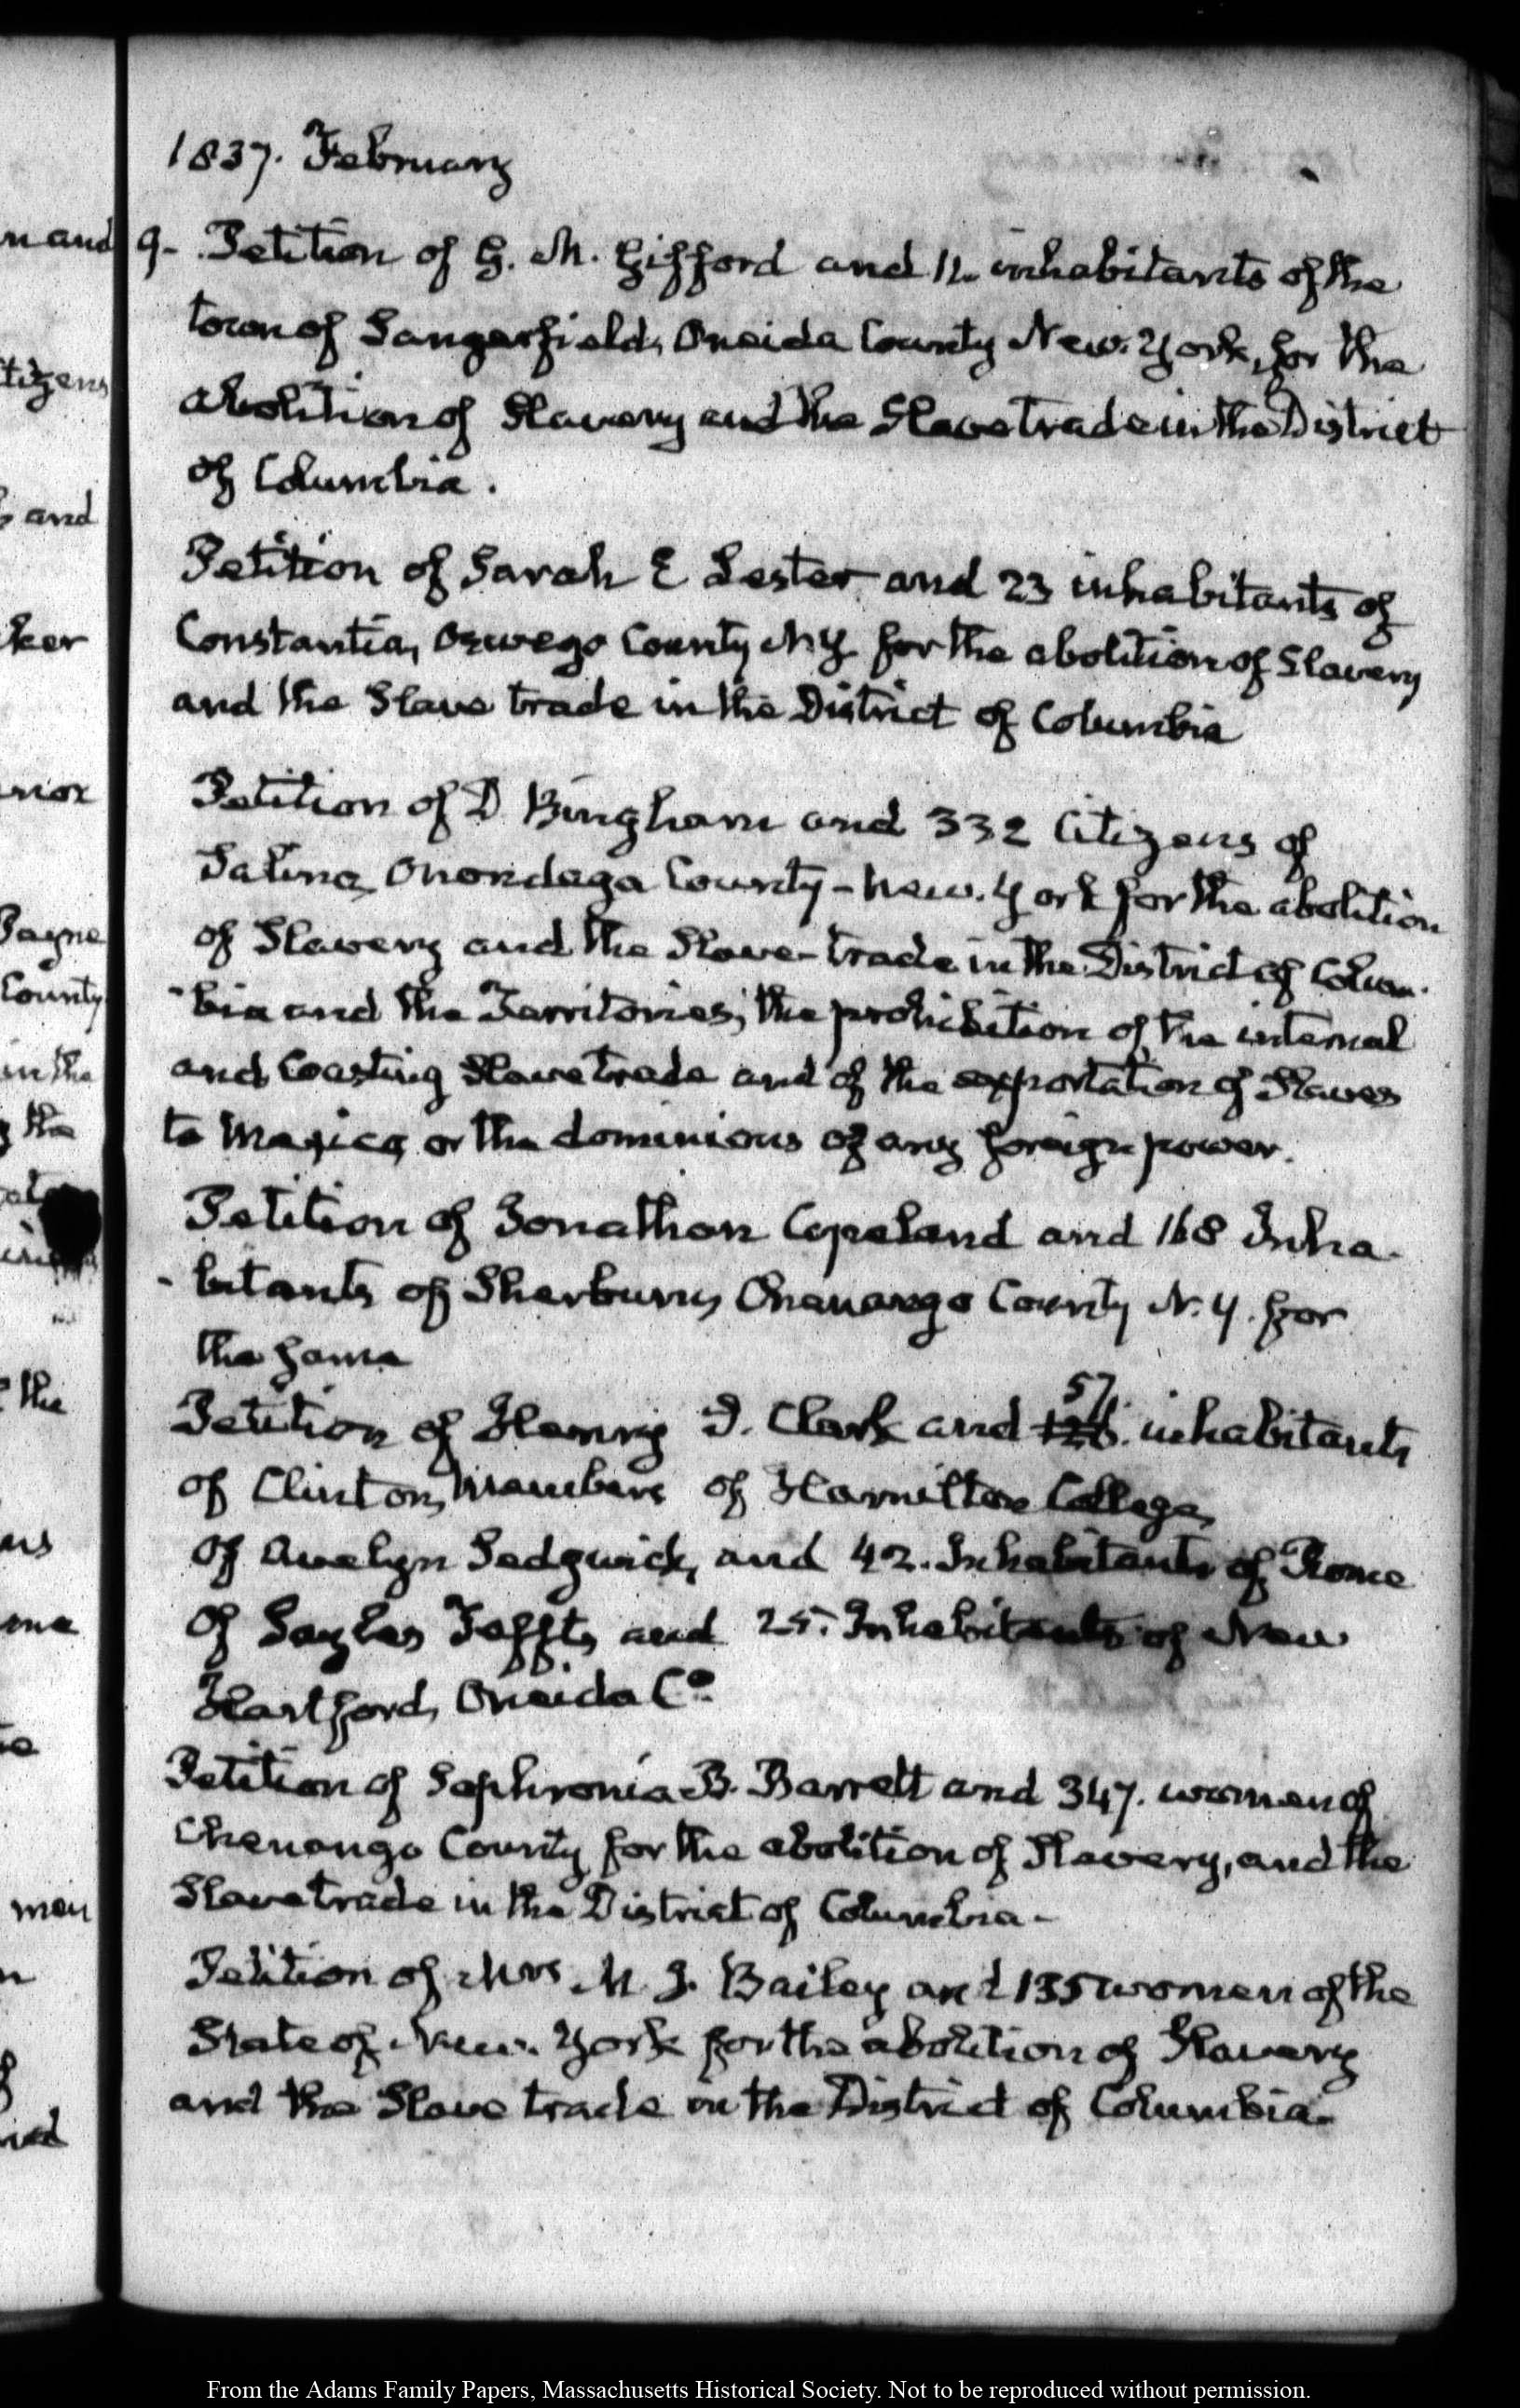 1837. February
9- Petition of G. M. Gifford and 12 inhabitants of the
town of Sangerfield, Oneida County New-York, for the
abolition of Slavery and the Slave trade in the District
of Columbia.
Petition of Sarah E Lester and 23 inhabitants of
Constantia, Oswego County N.Y. for the abolition of Slavery
and the Slave trade in the District of Columbia
Petition of D Bingham and 332 Citizens of
Salina, Onondaga County - New-York for the abolition
of Slavery and the Slave-trade in the District of Colum-
-bia and the Territories; the prohibition of the internal
and Coasting Slave trade and of the exportation of Slaves
to Mexico, or the dominions of any foreign power.
Petition of Jonathan Copeland and 168 Inha-
-bitants of Sherburne, Chenango County N.Y. for
the same
57.
Petition of Henry D. Clark and inhabitants
of Clinton, Members of Hamilton College,
of Avelyn Sedgwick, and 42. Inhabitants of Rome
of Sayles Tefft, and 25. Inhabitants of New
Hartford, Oneida Co.
Petition of Sophronia B. Barrett and 347. women of
Chenango County for the abolition of Slavery, and the
Slave trade in the District of Columbia-
Petition of Mrs M. J. Bailey and 135 women of the
State of New-York for the abolition of Slavery
and the Slave trade in the District of Columbia.
n and
tizens
and
ker
nor
Payne
County
in the
the
the
me
men
From the Adams Family Papers, Massachusetts Historical Society. Not to be reproduced without permission.